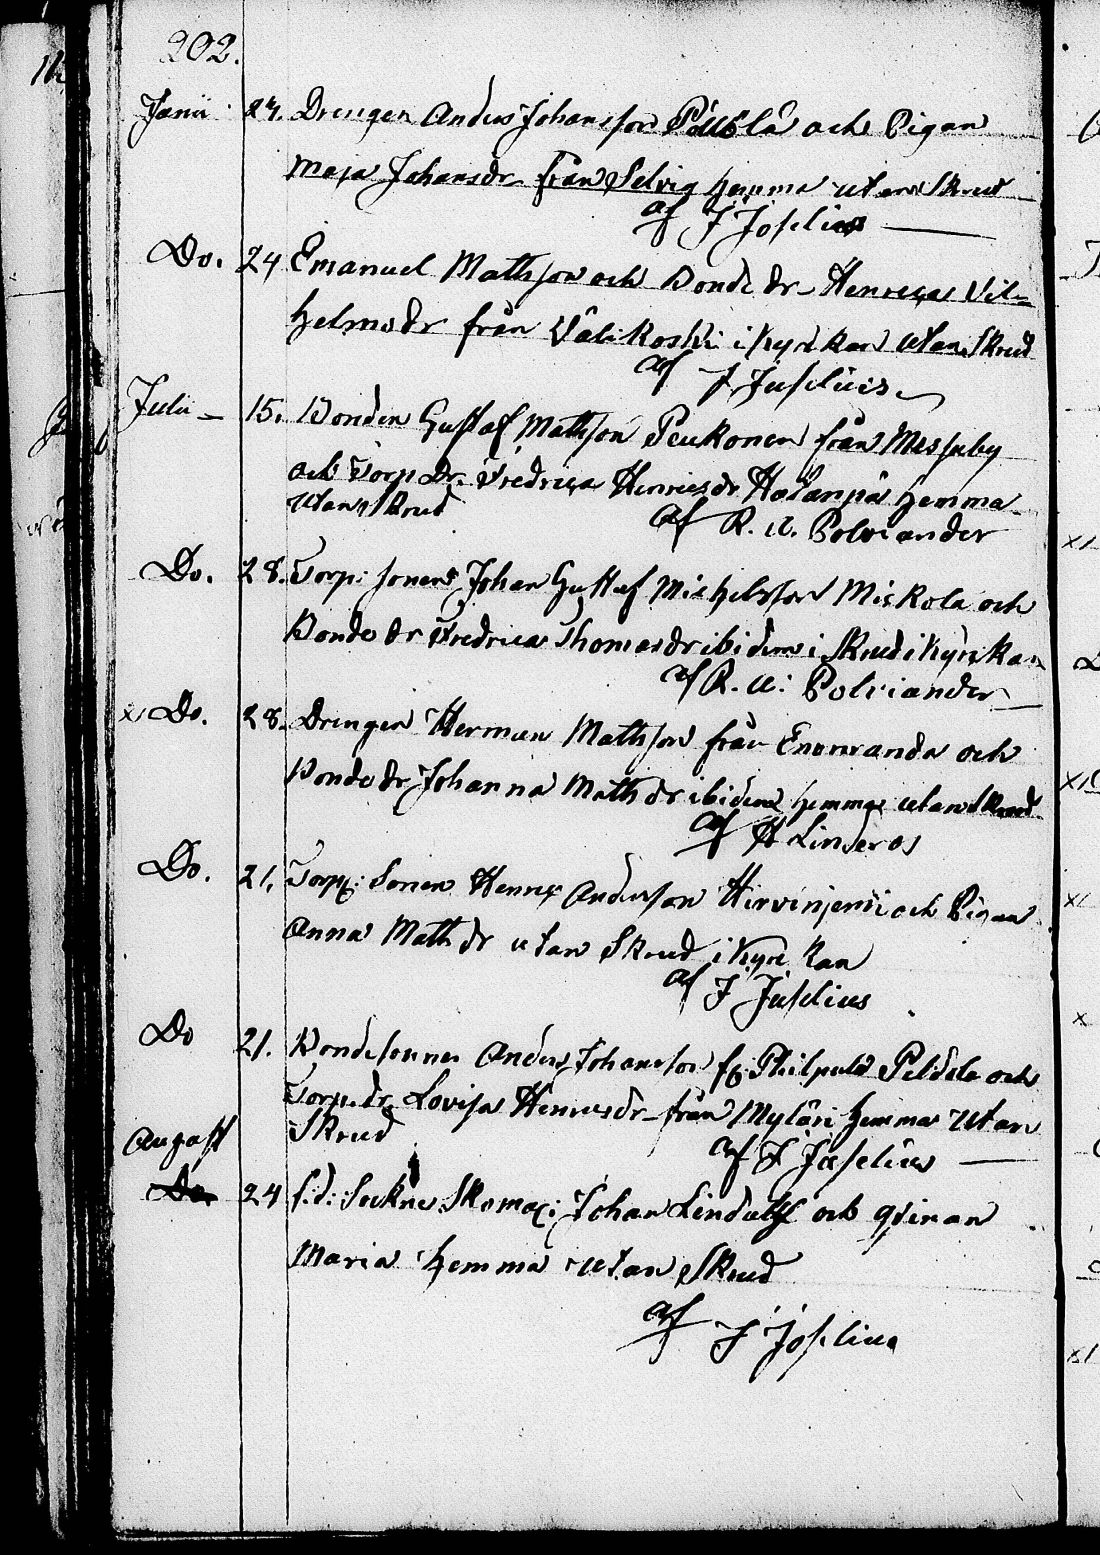 202.
Junii 24. Drengen Anders Johansson Pällilä och Pigan
Maja Johansdr från Selvig hemma utan Skrud
af J Joselius
Do. 24 Emanuel Mathsson och Bonde dr Henrica Vil-
helmsdr från Välikoski i Kyrkan utan Skrud
af J Juselius
Julii 15. Bonden Gustaf Mathsson Peukonen från Messuby
och Torp. Dr. Fredrica Henricsdr Hatanpä hemma
utan Skrud
af R. U. Polviander
Do. 28. Torp: sonen Johan Gustaf Michelsson Miskola och
Bonde dr Fredrica Thomasdr ibidem i Skrud i Kyrkan
af R. U: Polviander
x Do. 28. Drengen Herman Mathsson från Enonranda och
Bonde dr Johanna Mathsdr ibidem hemma utan Skrud
af H Linderos
Do. 21. Torp: Sonen Henric Andersson Hirvinjemi och Pigan
Anna Mathsdr utan Skrud i Kyrkan
af J Juselius
Do 21. Bondesonen Anders Johansson Philpula Peldola och
Torp. dr Lovisa Henricsdr från Myläri hemma utan
Skrud
af J Juselius
August
Do. 24 f: d: Sockne Skomak: Johan Lindulf och qvinan
Maria hemma utan Skrud
af J Joselius